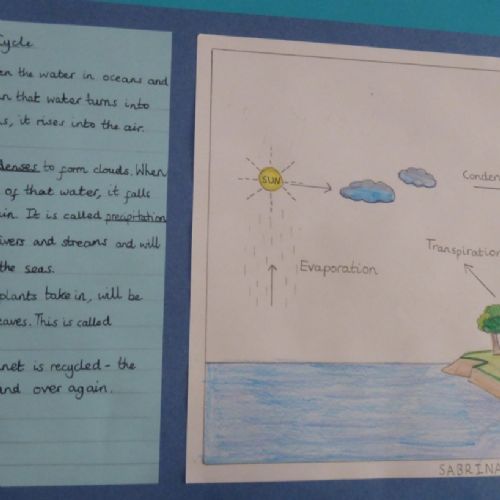 Cycle
en the water in oceans and
n that water turns into
s, it rises into the air.
denses to form clouds. When
of that water, it falls
in. It is called precipitation
ivers and streams and will
the seas.
plants take in, will be
eaves. This is called
net is recycled - the
and over again.
SUN
Conden
Transpiration
Evaporation
SABRINA